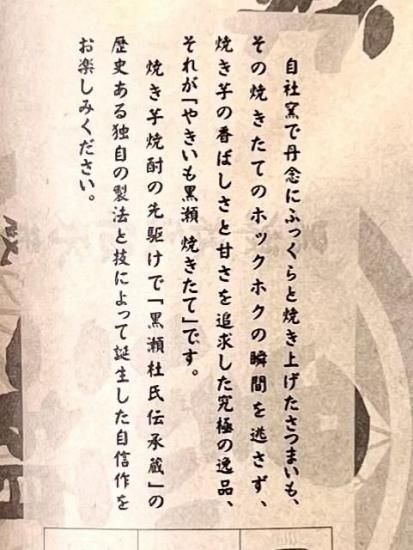 自社窯で丹念にふっくらと焼き上げたさつまいも、
その焼きたてのホックホクの瞬間を逃さず、
焼き芋の香ばしさと甘さを追求した究極の逸品、
それが「やきいも黒瀬 焼きたて」です。
焼き芋焼酎の先駆けで「黒瀬杜氏伝承蔵」の
歴史ある独自の製法と技によって誕生した自信作を
お楽しみください。